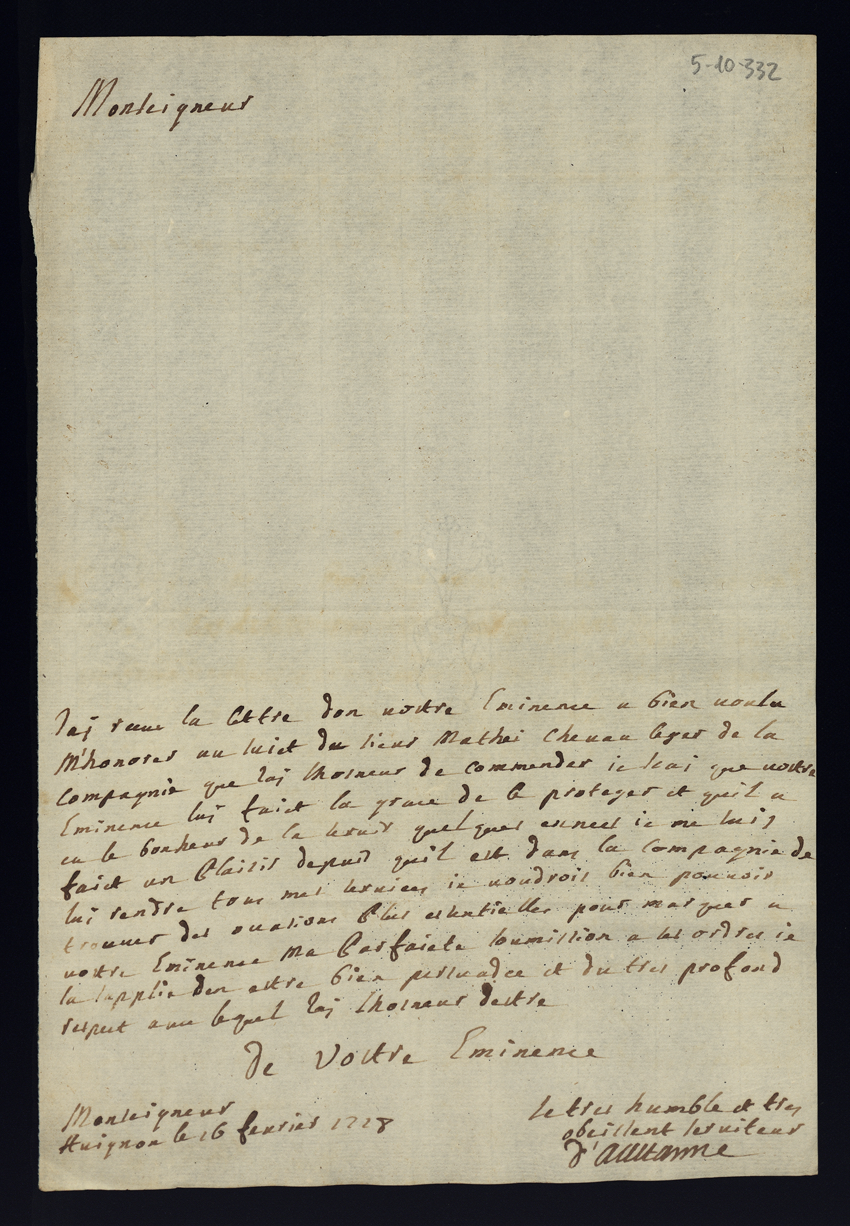 5-10-332
Monseigneur
Jaj receu la lettre don vostre Eminence a bien voulu
M'honorer au suiet du sieur Mathei Chevau leger de la
Compagnie que Jaj lhonneur de Commender ie scai que vostre
Eminence luj faict la grace de le proteger et quil a
eu le bonheur de la servir quelques années ie me suis
faict un Plaisir depuis quil est dans la Compagnie de
luj rendre tous mes services ie voudrois bien pouvoir
trouver des ocasions Plus essentielles pour marquer a
vostre Eminence Ma Parfaicte soumission a ses ordres ie
la supplie den estre bien persuadée et du tres profond
respect avec lequel Jaj lhonneur destre
De Vostre Eminence
Monseigneur
Avignon le 16 fevrier 1728
Le tres humble et tres
obeissent serviteur